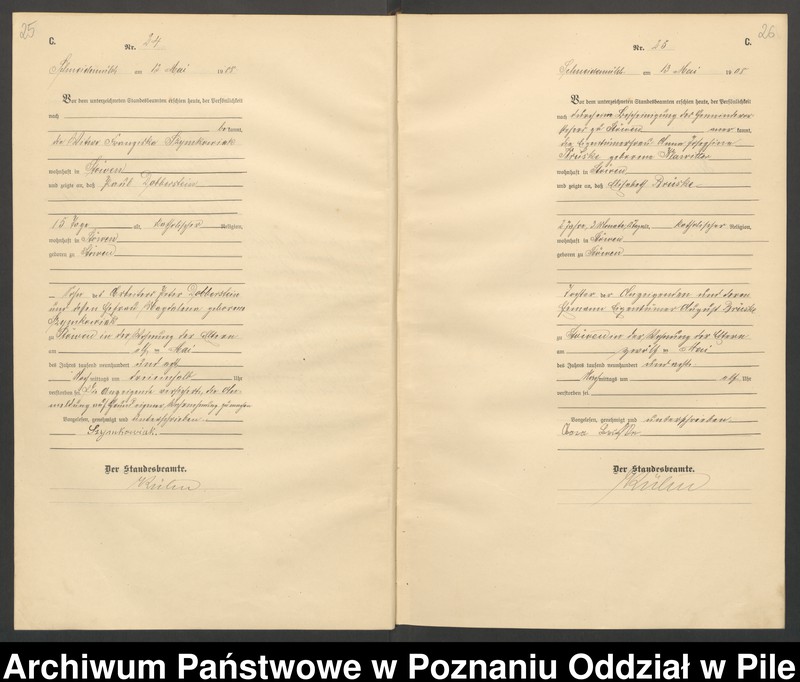 25
C.
Nr. 24
Schneidemühl am 12 Mai 1908
Vor dem unterzeichneten Standesbeamten erschien heute, der Persönlichkeit
nach
bekannt,
die Szymkowiak
wohnhaft in Stöwen
und zeigte an, daß Paul Dobberstein
15 Tage alt, katholischer Religion,
wohnhaft in Stöwen
geboren zu Stöwen
Sohn des Arbeiters Peter Dobberstein
und dessen Ehefrau Magdalena geborene
Szymkowiak
zu Stöwen in der Wohnung der Eltern
am elf ten Mai
des Jahres tausend neunhundert und acht
Nachmittags um Uhr
verstorben sei. Die Anzeigende erklärte, die An-
meldung auf Grund eigener Wissenschaft zu machen
Vorgelesen, genehmigt und unterschrieben
Szymkowiak
Der Standesbeamte.
Kühn
26
C.
Nr. 25
Schneidemühl am 13 Mai 1908
Vor dem unterzeichneten Standesbeamten erschien heute, der Persönlichkeit
nach durch eine Bescheinigung des Gemeindevor-
stehers zu Stöwen aner kannt,
die Eigentümerfrau Anna Josephine
geborene
wohnhaft in Stöwen
und zeigte an, daß Elisabeth
2 Jahre, 3 Monate, katholischer Religion,
wohnhaft in Stöwen
geboren zu Stöwen
Tochter der Anzeigenden und deren
Ehemann Eigentümer August
zu Stöwen in der Wohnung der Eltern
am zwölf ten Mai
des Jahres tausend neunhundert und acht
Nachmittags um elf Uhr
verstorben sei.
Vorgelesen, genehmigt und unterschrieben
Der Standesbeamte.
Kühn
Archiwum Państwowe w Poznaniu Oddział w Pile